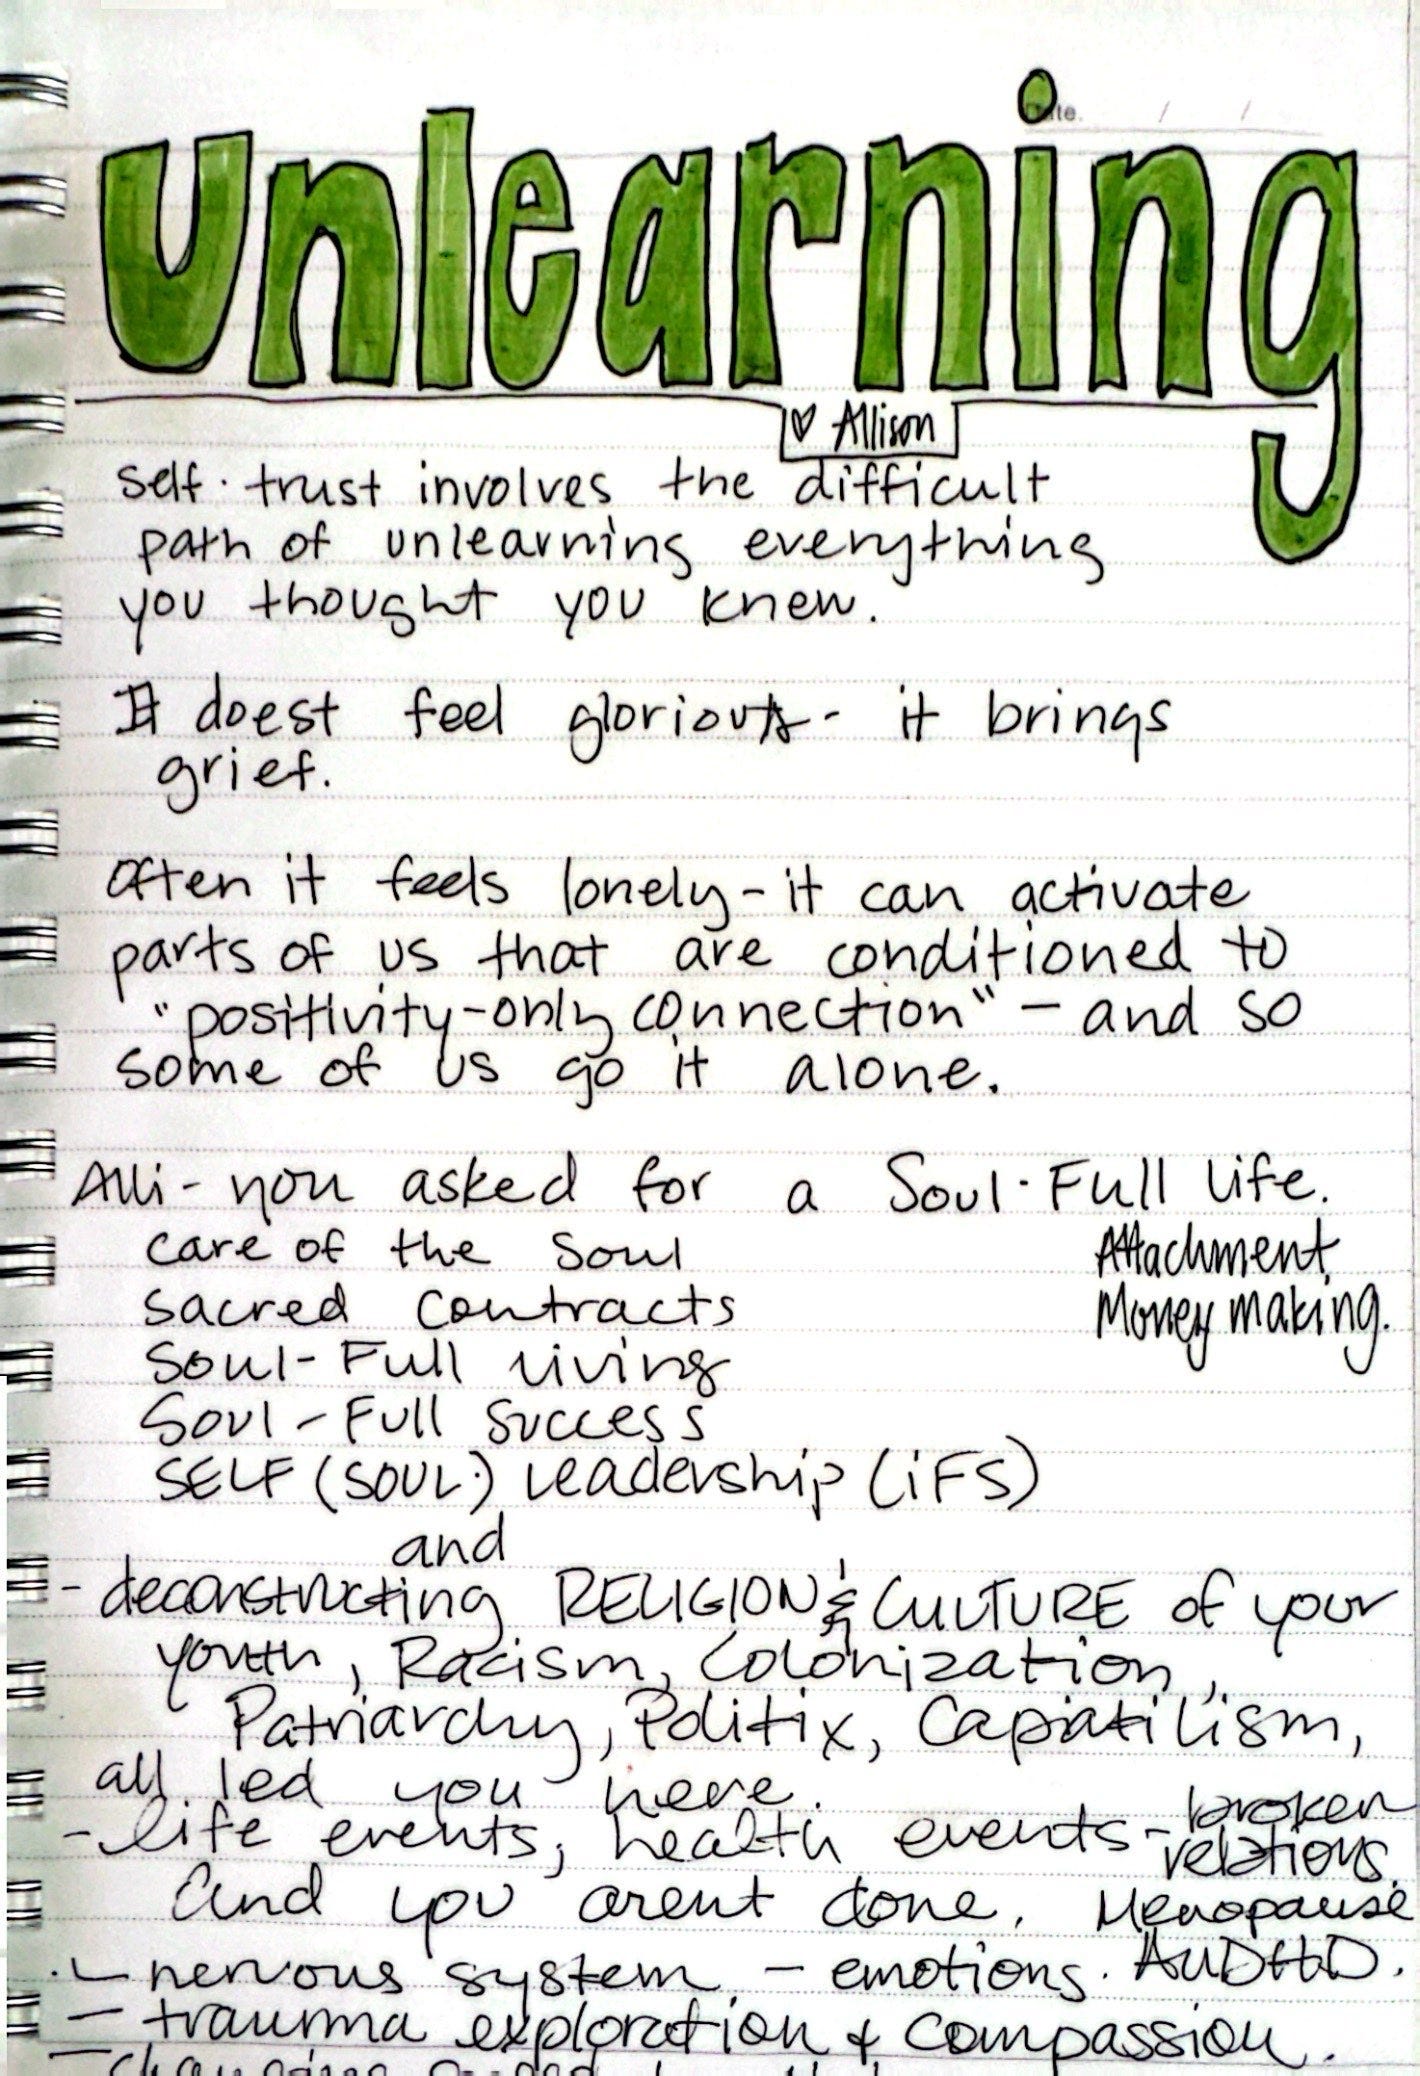 Date. / /
unlearning
♡ Allison
self-trust involves the difficult
path of unlearning everything
you thought you knew.
It doest feel glorious - it brings
grief.
Often it feels lonely - it can activate
parts of us that are conditioned to
"positivity-only connection" - and so
some of us go it alone.
Alli - you asked for a Soul-Full life.
care of the soul
Attachment
sacred contracts
Money making.
Soul-Full living
Soul-Full success
SELF (SOUL) Leadership (iFS)
and
- deconstructing RELIGION & CULTURE of your
youth, Racism, Colonization,
Patriarchy, Politix, Capiatilism,
all led you here.
- life events, health events - broken
relations.
And you arent done. Menopause
- nervous system - emotions. AuDHD.
- trauma exploration & compassion.